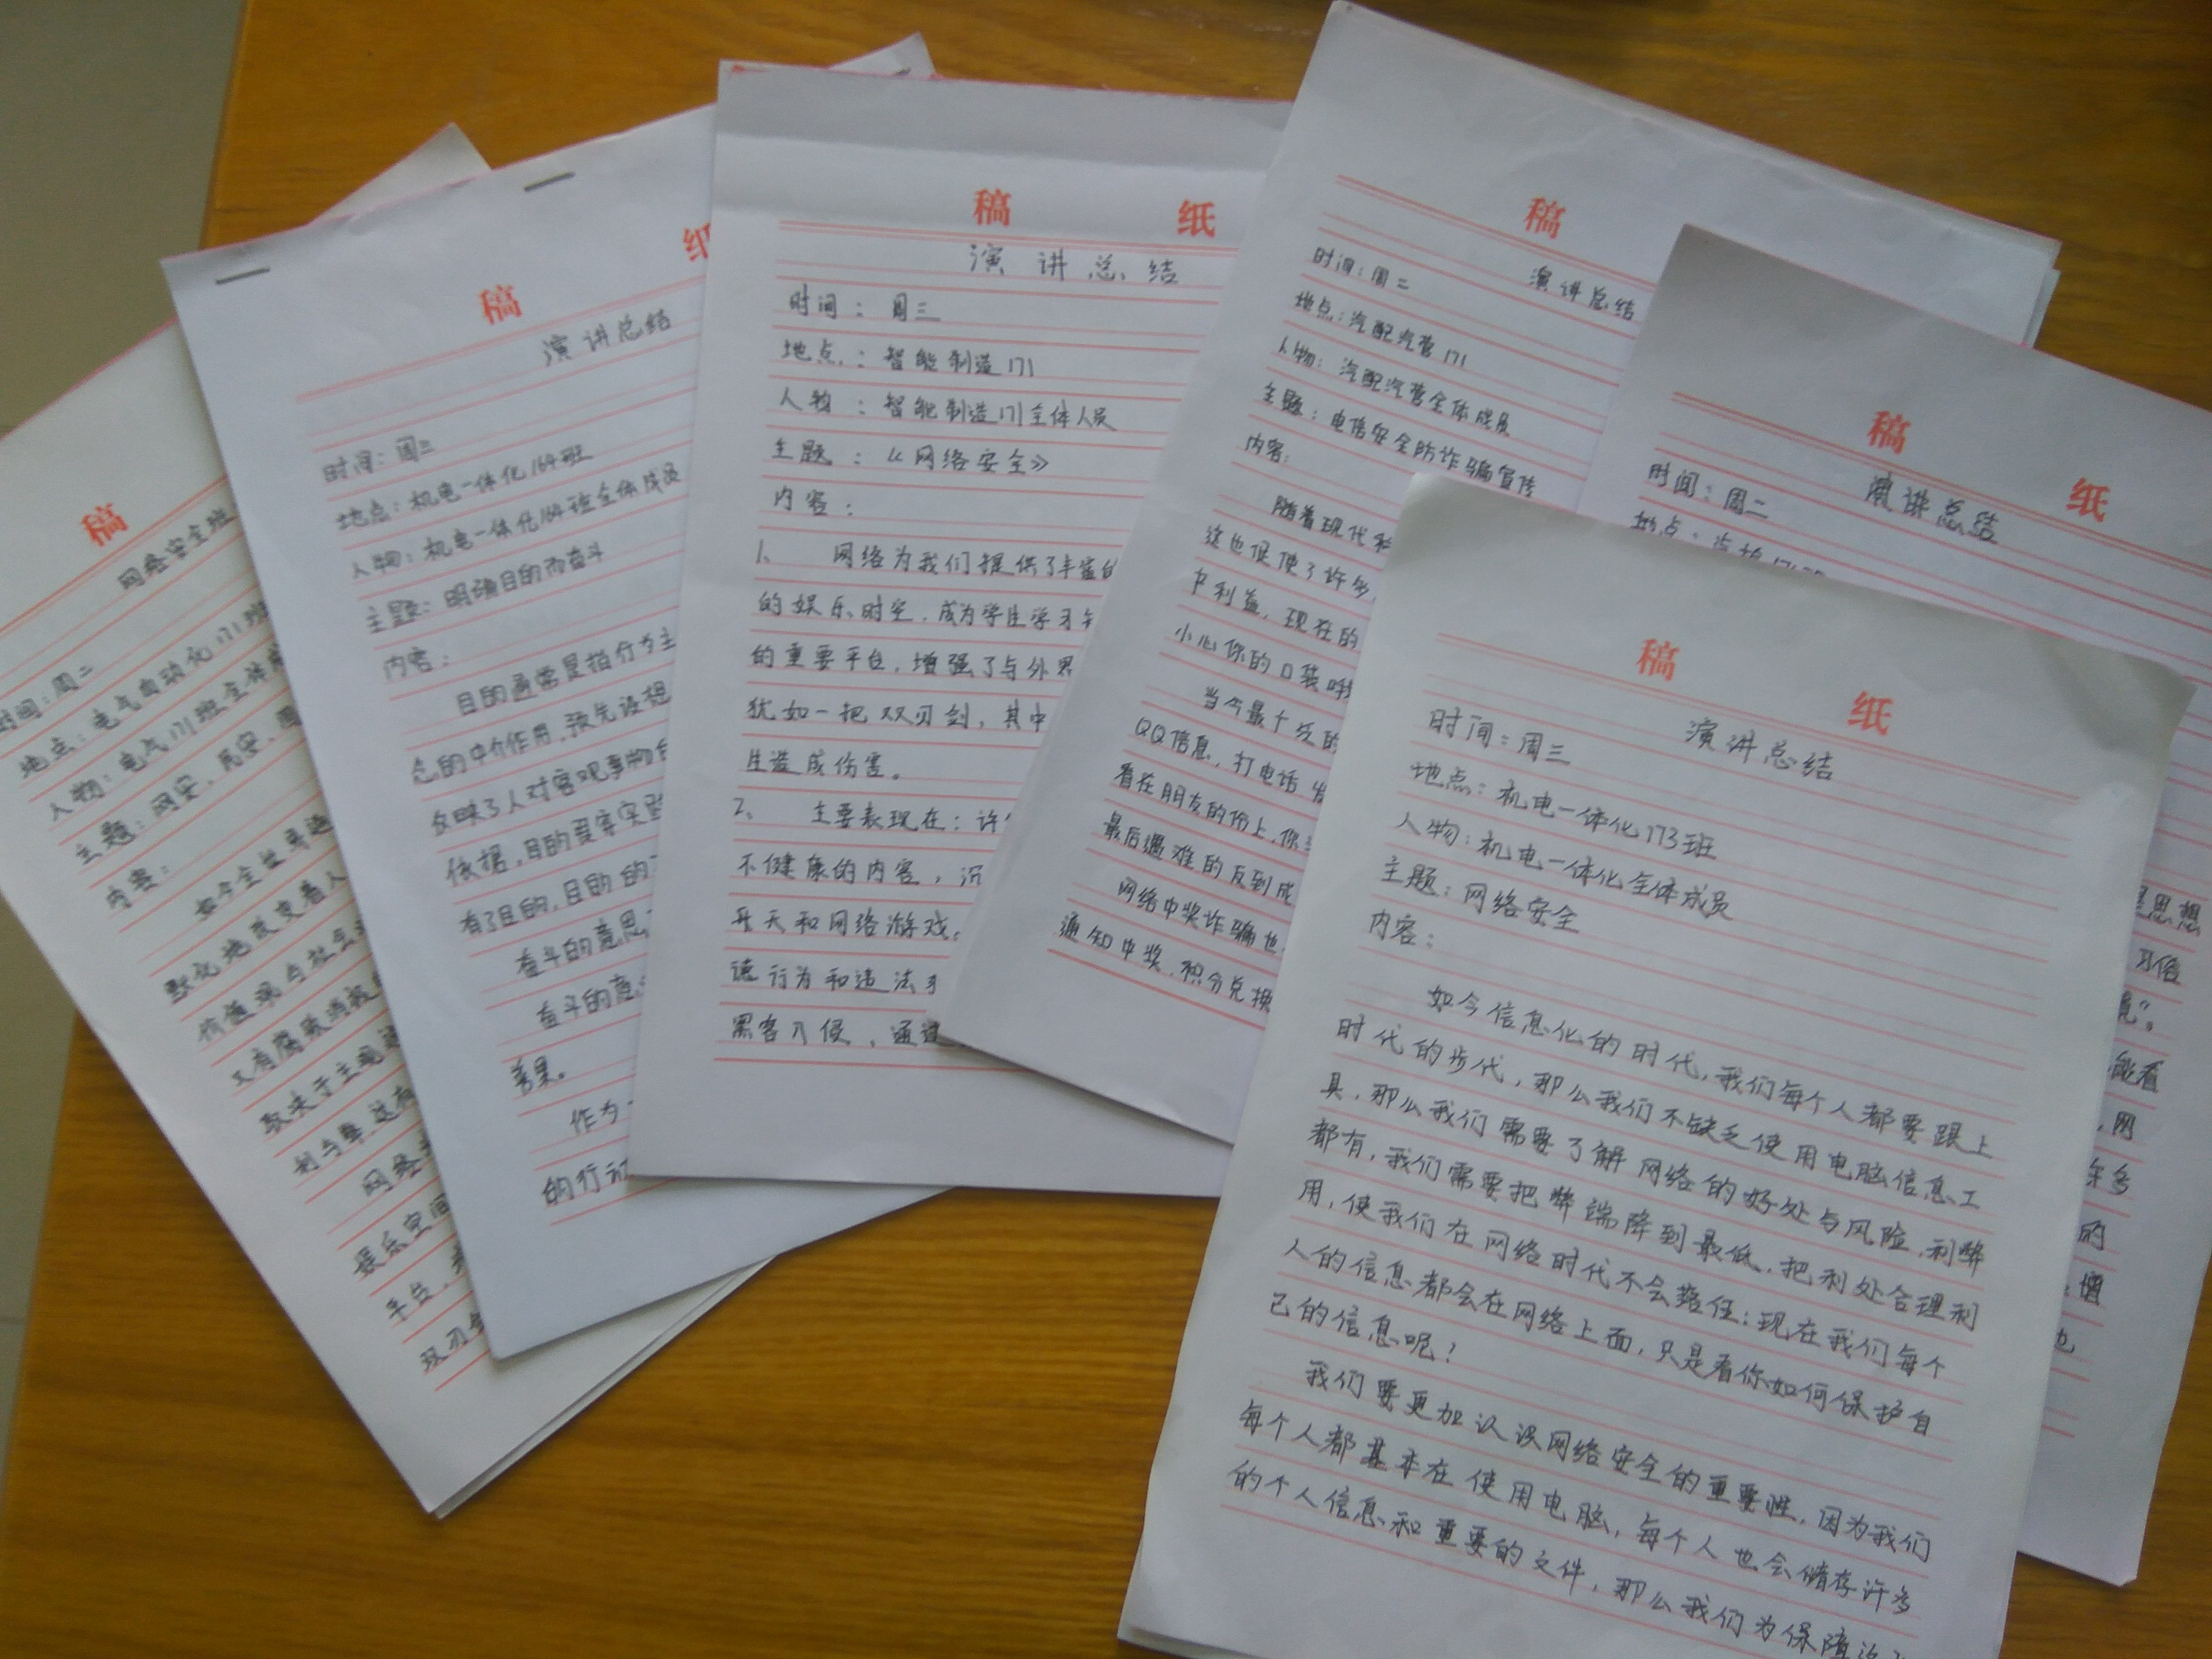 稿
网络安全班
时间：周二
地点：电气自动化171班
人物：电气171班全体
主题：网安、民安、国
内容：
如今全世界
默化地改变着人
价值观与社会
又有腐败消极
取决于主观
利与弊
网络
娱乐空间
平台
双刃
稿 纸
演讲总结
时间：周三
地点：机电一体化164班
人物：机电一体化164班全体成员
主题：明确目的而奋斗
内容：
目的通常是指行为主
的中介作用，预先设想
反映了人对客观事物
依据，目的贯穿实践
有了目的，目的的
奋斗的意思
奋斗的意
善果。
作为
的行动
稿 纸
演讲总结
时间：周三
地点：智能制造171
人物：智能制造171全体人员
主题：《网络安全》
内容：
1、 网络为我们提供了丰富的
的娱乐时空，成为学生学习
的重要平台，增强了与外界
犹如一把双刃剑，其中
生造成伤害。
2、 主要表现在：许
不健康的内容，沉
天和网络游戏
德行为和违法
黑客入侵，通过
稿
演讲总结
时间：周二
地点：汽配汽营171
人物：汽配汽营全体成员
主题：电信安全防诈骗宣传
内容：
随着现代科
这也促使了许多
户利益，现在的
小心你的口袋
当今最广泛的
QQ信息，打电话
看在朋友的份上，你
最后遇难的反到成
网络中奖诈骗也
通知中奖，积分兑换
稿 纸
演讲总结
时间：周二
地点：
思想
习俗
能看
，网
的
也
稿 纸
演讲总结
时间：周三
地点：机电一体化173班
人物：机电一体化全体成员
主题：网络安全
内容：
如今信息化的时代，我们每个人都要跟上
时代的步伐，那么我们不缺乏使用电脑信息工
具，那么我们需要了解网络的好处与风险，利弊
都有，我们需要把弊端降到最低，把利处合理利
用，使我们在网络时代不会落伍；现在我们每个
人的信息都会在网络上面，只是看你如何保护自
己的信息呢？
我们要更加认识网络安全的重要性，因为我们
每个人都基本在使用电脑，每个人也会储存许多
的个人信息和重要的文件，那么我们为保障